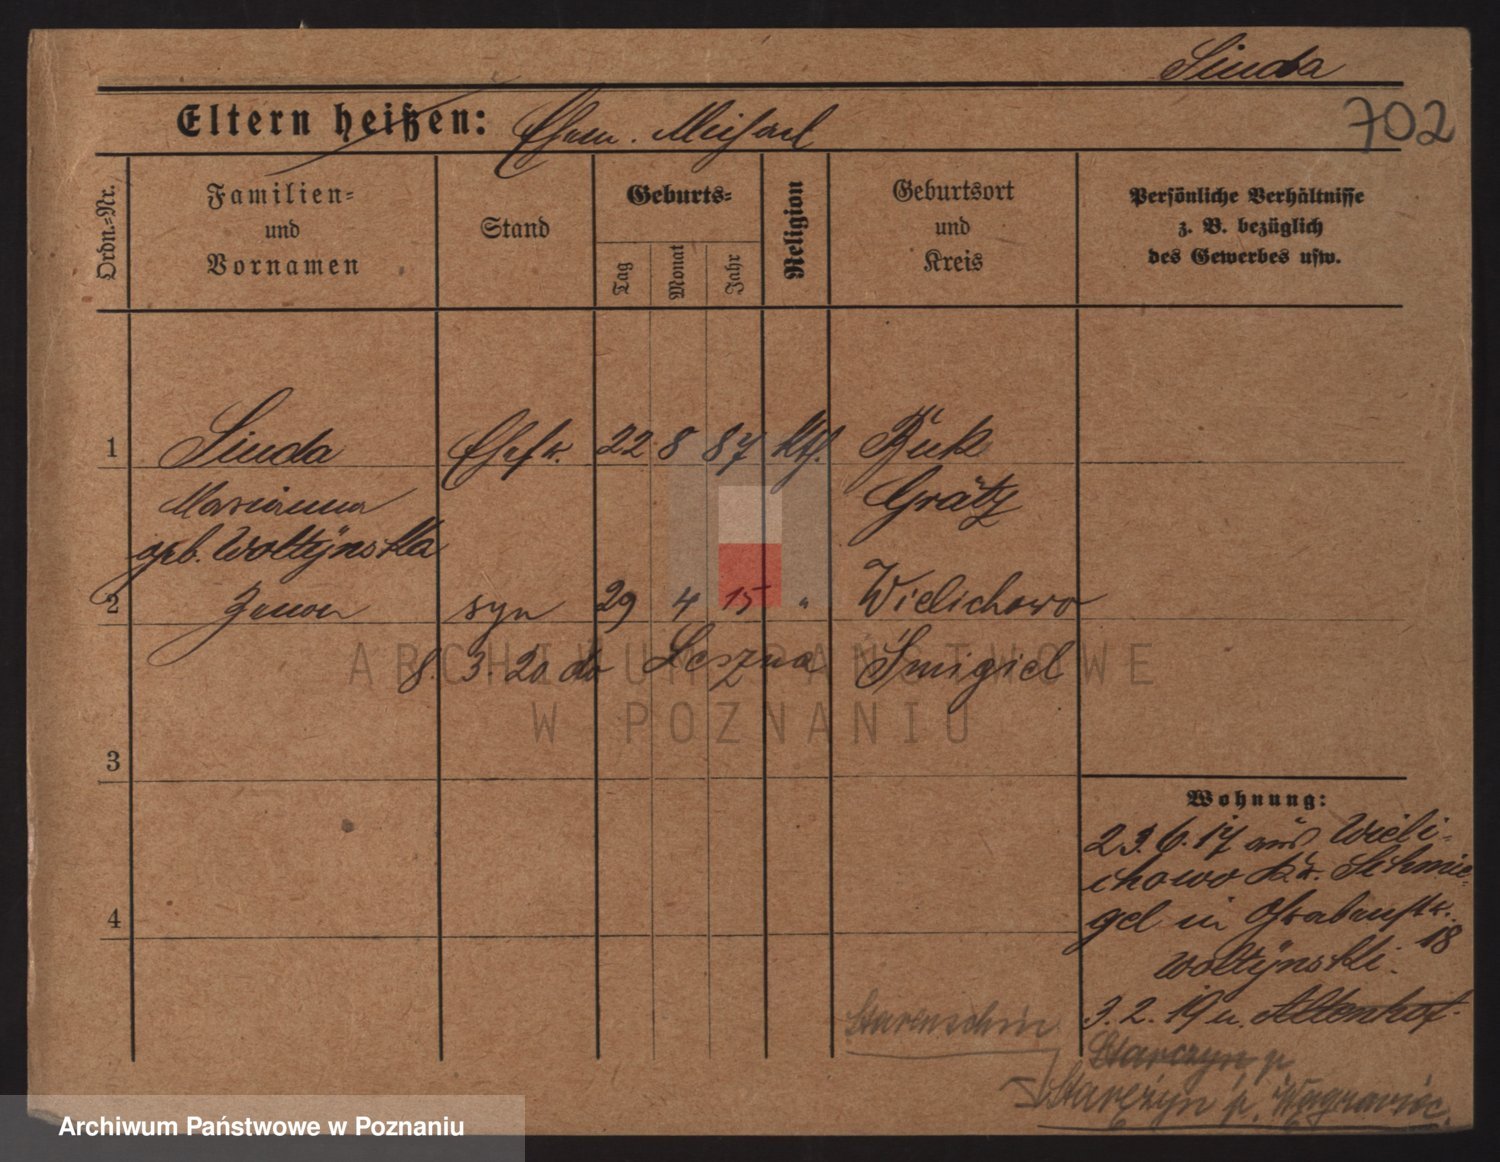 Sinda
Eltern heißen: Ehem. Michael
702
Ordn.-Nr.
Familien-
und
Vornamen
Stand
Geburts-
Tag
Monat
Jahr
Religion
Geburtsort
und
Kreis
Persönliche Verhältnisse
z. B. bezüglich
des Gewerbes usw.
1 Sinda Ehefr. 22 8 87 kth. Buk
Marianna Grätz
geb. Woltÿnska
2 syn 29 4 15 " Wielichowo
8. 3. 20 do Leszna Śmigiel
3
4
Wohnung:
23. 6. 17 aus Wieli-
chowo Kr. Schmie-
gel in
18
Woltÿnski.
3. 2. 19 n. Altenhof
Starenschin
Starczyn p.
Starczyn p. Wągrowiec.
ARCHIWUM PAŃSTWOWE
W POZNANIU
Archiwum Państwowe w Poznaniu